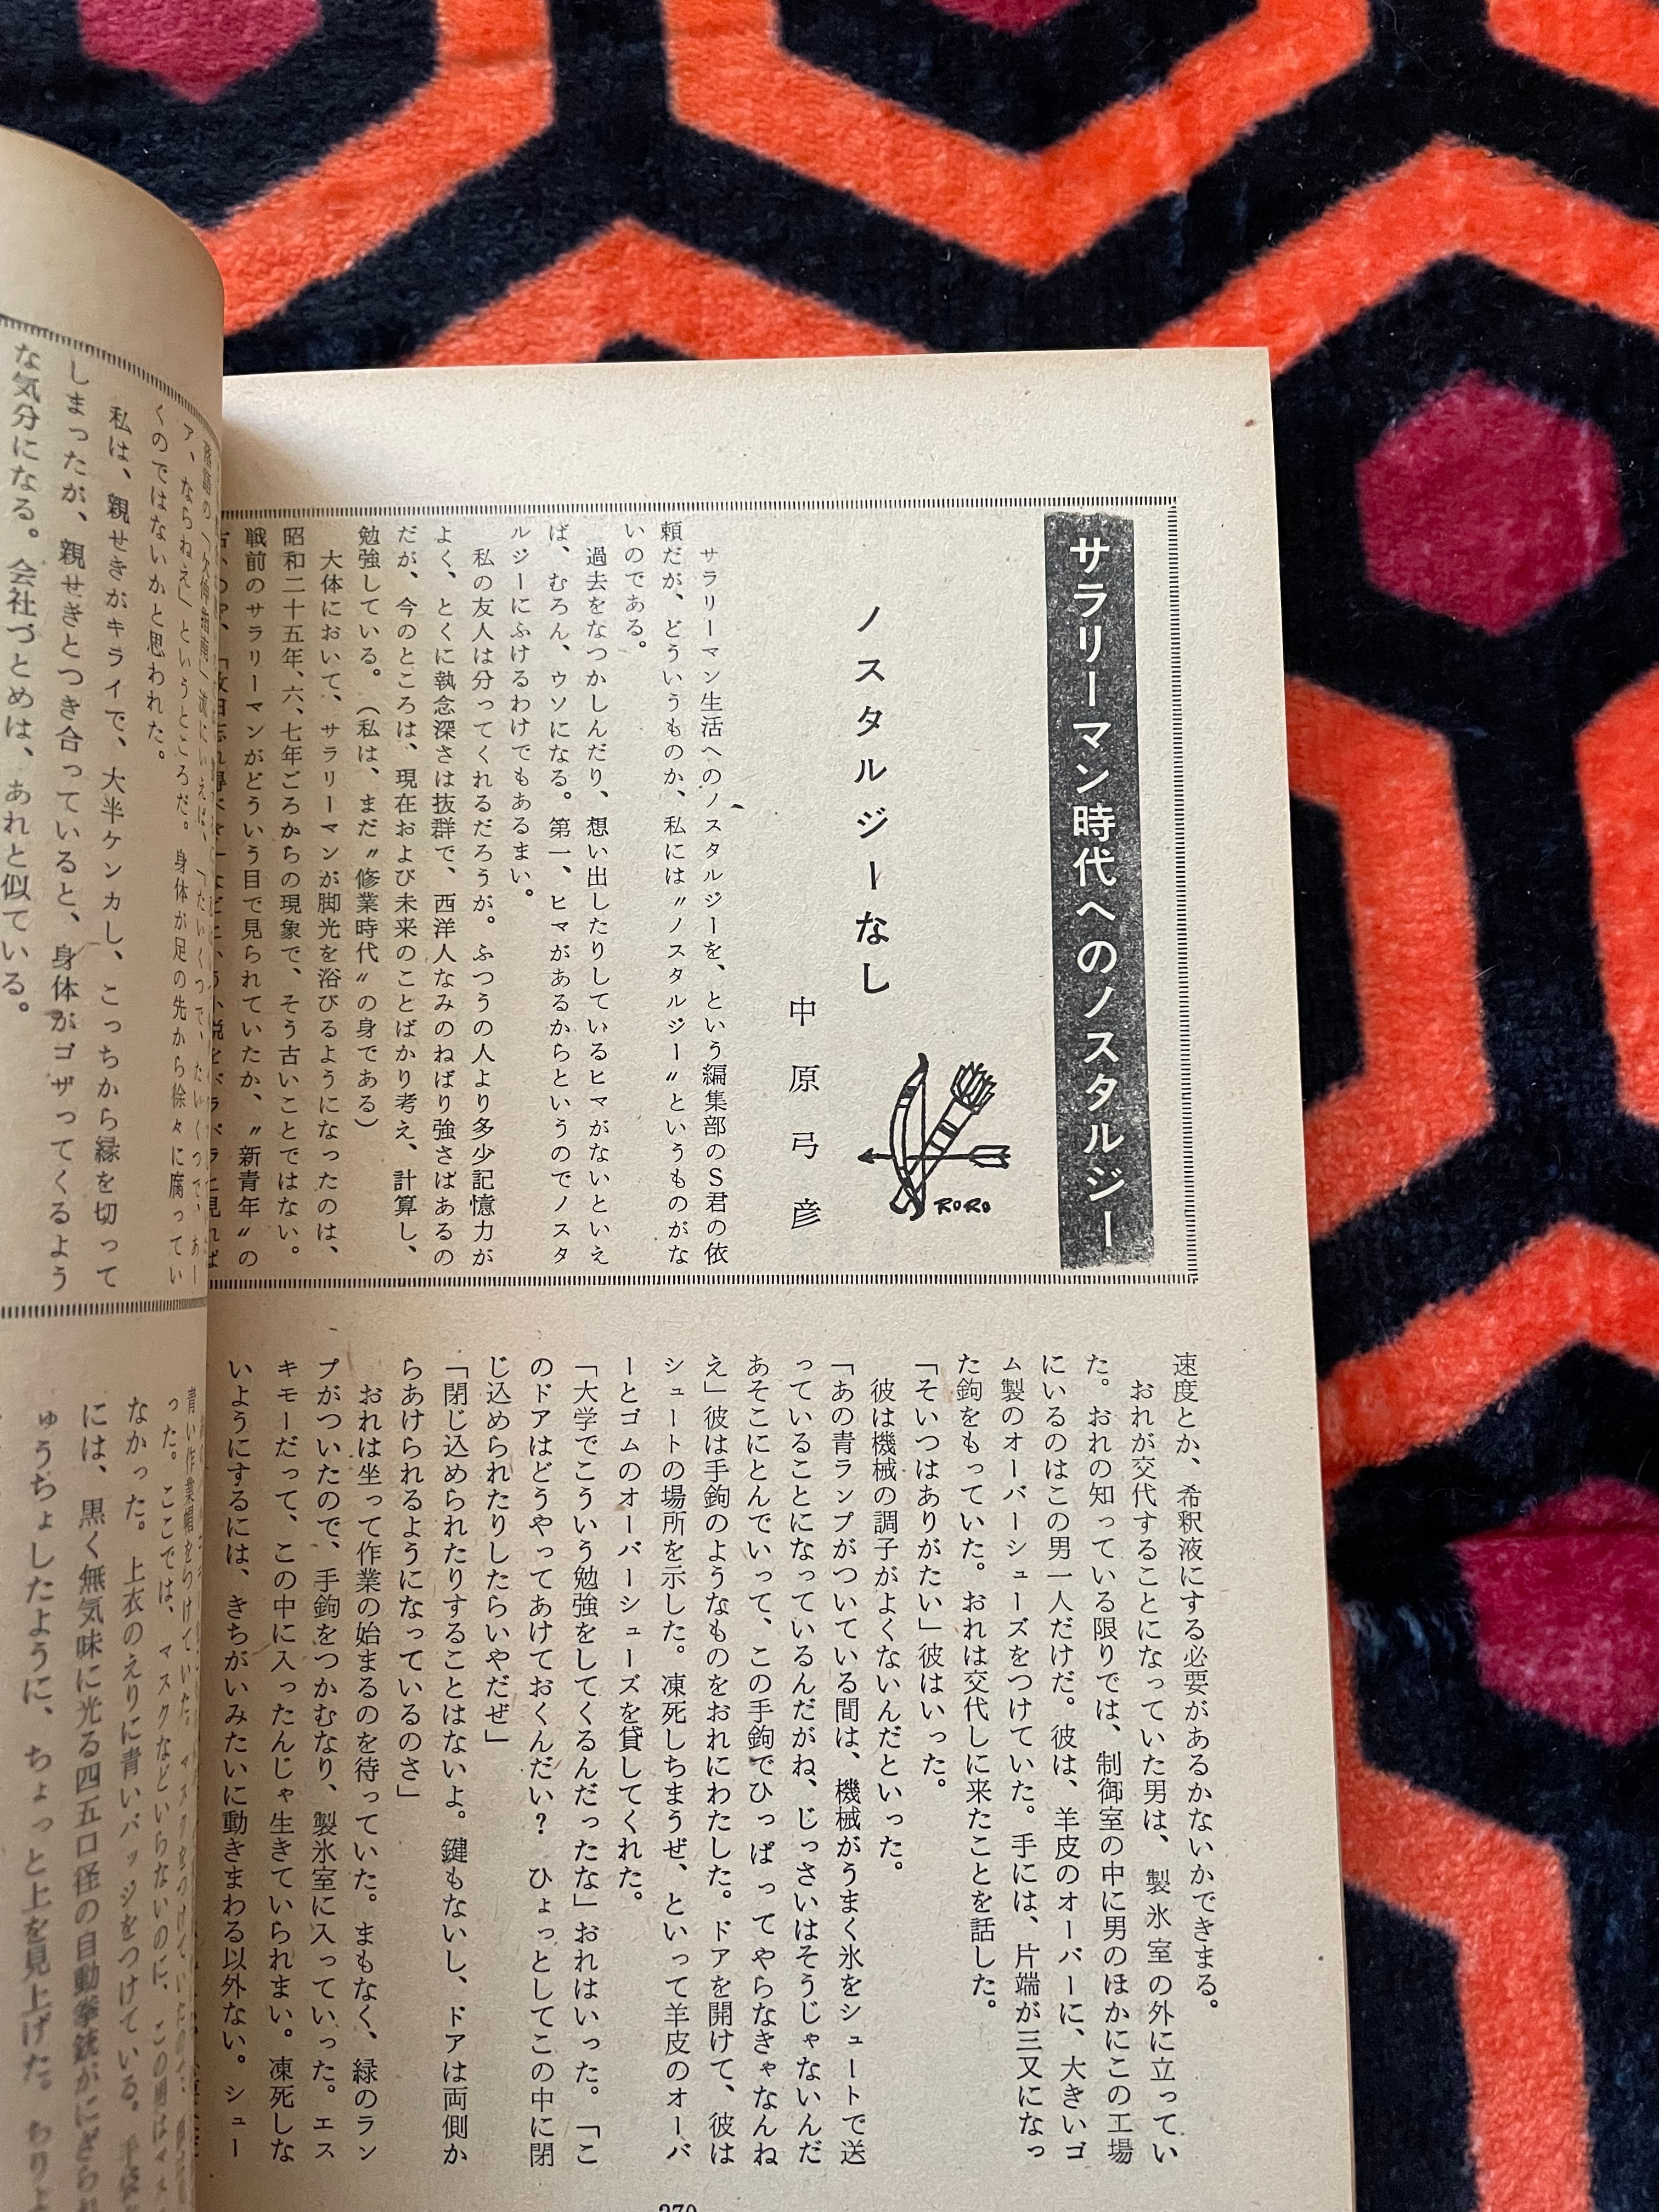 サラリーマン時代へのノスタルジー
ノスタルジーなし
RORO
中原弓彦
サラリーマン生活へのノスタルジーを、という編集部のS君の依
頼だが、どういうものか、私には〝ノスタルジー〟というものがな
いのである。
過去をなつかしんだり、想い出したりしているヒマがないといえ
ば、むろん、ウソになる。第一、ヒマがあるからというのでノスタ
ルジーにふけるわけでもあるまい。
私の友人は分ってくれるだろうが。ふつうの人より多少記憶力が
よく、とくに執念深さは抜群で、西洋人なみのねばり強さはあるの
だが、今のところは、現在および未来のことばかり考え、計算し、
勉強している。(私は、まだ〝修業時代〟の身である)
大体において、サラリーマンが脚光を浴びるようになったのは、
昭和二十五年、六、七年ごろからの現象で、そう古いことではない。
戦前のサラリーマンがどういう目で見られていたか、〝新青年〟の
ア、ならねえ」というところだ。身体が足の先から徐々に腐ってい
くのではないかと思われた。
私は、親せきがキライで、大半ケンカし、こっちから縁を切って
しまったが、親せきとつき合っていると、身体がゴザってくるよう
な気分になる。会社づとめは、あれと似ている。
速度とか、希釈液にする必要があるかないかできまる。
おれが交代することになっていた男は、製氷室の外に立ってい
た。おれの知っている限りでは、制御室の中に男のほかにこの工場
にいるのはこの男一人だけだ。彼は、羊皮のオーバーに、大きいゴ
ム製のオーバーシューズをつけていた。手には、片端が三又になっ
た鉤をもっていた。おれは交代しに来たことを話した。
「そいつはありがたい」彼はいった。
彼は機械の調子がよくないんだといった。
「あの青ランプがついている間は、機械がうまく氷をシュートで送
っていることになっているんだがね、じっさいはそうじゃないんだ
あそこにとんでいって、この手鉤でひっぱってやらなきゃなんね
え」彼は手鉤のようなものをおれにわたした。ドアを開けて、彼は
シュートの場所を示した。凍死しちまうぜ、といって羊皮のオーバ
ーとゴムのオーバーシューズを貸してくれた。
「大学でこういう勉強をしてくるんだったな」おれはいった。「こ
のドアはどうやってあけておくんだい? ひょっとしてこの中に閉
じ込められたりしたらいやだぜ」
「閉じ込められたりすることはないよ。鍵もないし、ドアは両側か
らあけられるようになっているのさ」
おれは坐って作業の始まるのを待っていた。まもなく、緑のラン
プがついたので、手鉤をつかむなり、製氷室に入っていった。エス
キモーだって、この中に入ったんじゃ生きていられまい。凍死しな
いようにするには、きちがいみたいに動きまわる以外ない。シュー
った。ここでは、マスクなどいらないのに、この男はマス
なかった。上衣のえりに青いバッジをつけている。手袋
には、黒く無気味に光る四五口径の自動拳銃がにぎられ
ゅうちょしたように、ちょっと上を見上げた。